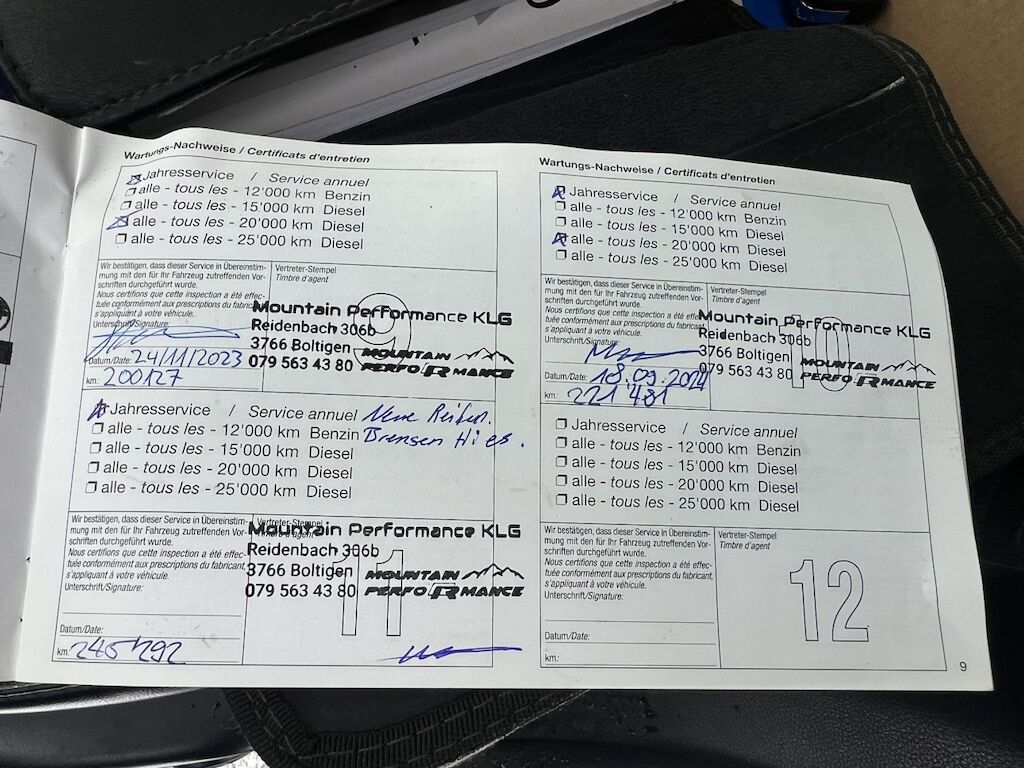 Wartungs-Nachweise / Certificats d'entretien
Jahresservice / Service annuel
alle - tous les - 12'000 km Benzin
alle - tous les - 15'000 km Diesel
alle - tous les - 20'000 km Diesel
alle - tous les - 25'000 km Diesel
Wir bestätigen, dass dieser Service in Übereinstim-
mung mit den für Ihr Fahrzeug zutreffenden Vor-
schriften durchgeführt wurde.
Nous certifions que cette inspection a été effec-
tuée conformément aux prescriptions du fabricant,
s'appliquant à votre véhicule.
Unterschrift/Signature:
Datum/Date: 24/11/2023
km: 200127
Vertreter-Stempel
Timbre d'agent
9
Mountain Performance KLG
Reidenbach 306b
3766 Boltigen
079 563 43 80
MOUNTAIN
PERFORMANCE
Jahresservice / Service annuel Neue Reifen.
alle - tous les - 12'000 km Benzin Bremsen Hi es.
alle - tous les - 15'000 km Diesel
alle - tous les - 20'000 km Diesel
alle - tous les - 25'000 km Diesel
Wir bestätigen, dass dieser Service in Übereinstim-
mung mit den für Ihr Fahrzeug zutreffenden Vor-
schriften durchgeführt wurde.
Nous certifions que cette inspection a été effec-
tuée conformément aux prescriptions du fabricant,
s'appliquant à votre véhicule.
Unterschrift/Signature:
Datum/Date:
km: 245'292
Vertreter-Stempel
Timbre d'agent
11
Mountain Performance KLG
Reidenbach 306b
3766 Boltigen
079 563 43 80
MOUNTAIN
PERFORMANCE
Wartungs-Nachweise / Certificats d'entretien
Jahresservice / Service annuel
alle - tous les - 12'000 km Benzin
alle - tous les - 15'000 km Diesel
alle - tous les - 20'000 km Diesel
alle - tous les - 25'000 km Diesel
Wir bestätigen, dass dieser Service in Übereinstim-
mung mit den für Ihr Fahrzeug zutreffenden Vor-
schriften durchgeführt wurde.
Nous certifions que cette inspection a été effec-
tuée conformément aux prescriptions du fabricant,
s'appliquant à votre véhicule.
Unterschrift/Signature:
Datum/Date: 18.09.2024
km: 221'481
Vertreter-Stempel
Timbre d'agent
10
Mountain Performance KLG
Reidenbach 306b
3766 Boltigen
079 563 43 80
MOUNTAIN
PERFORMANCE
Jahresservice / Service annuel
alle - tous les - 12'000 km Benzin
alle - tous les - 15'000 km Diesel
alle - tous les - 20'000 km Diesel
alle - tous les - 25'000 km Diesel
Wir bestätigen, dass dieser Service in Übereinstim-
mung mit den für Ihr Fahrzeug zutreffenden Vor-
schriften durchgeführt wurde.
Nous certifions que cette inspection a été effec-
tuée conformément aux prescriptions du fabricant,
s'appliquant à votre véhicule.
Unterschrift/Signature:
Datum/Date:
km:
Vertreter-Stempel
Timbre d'agent
12
9